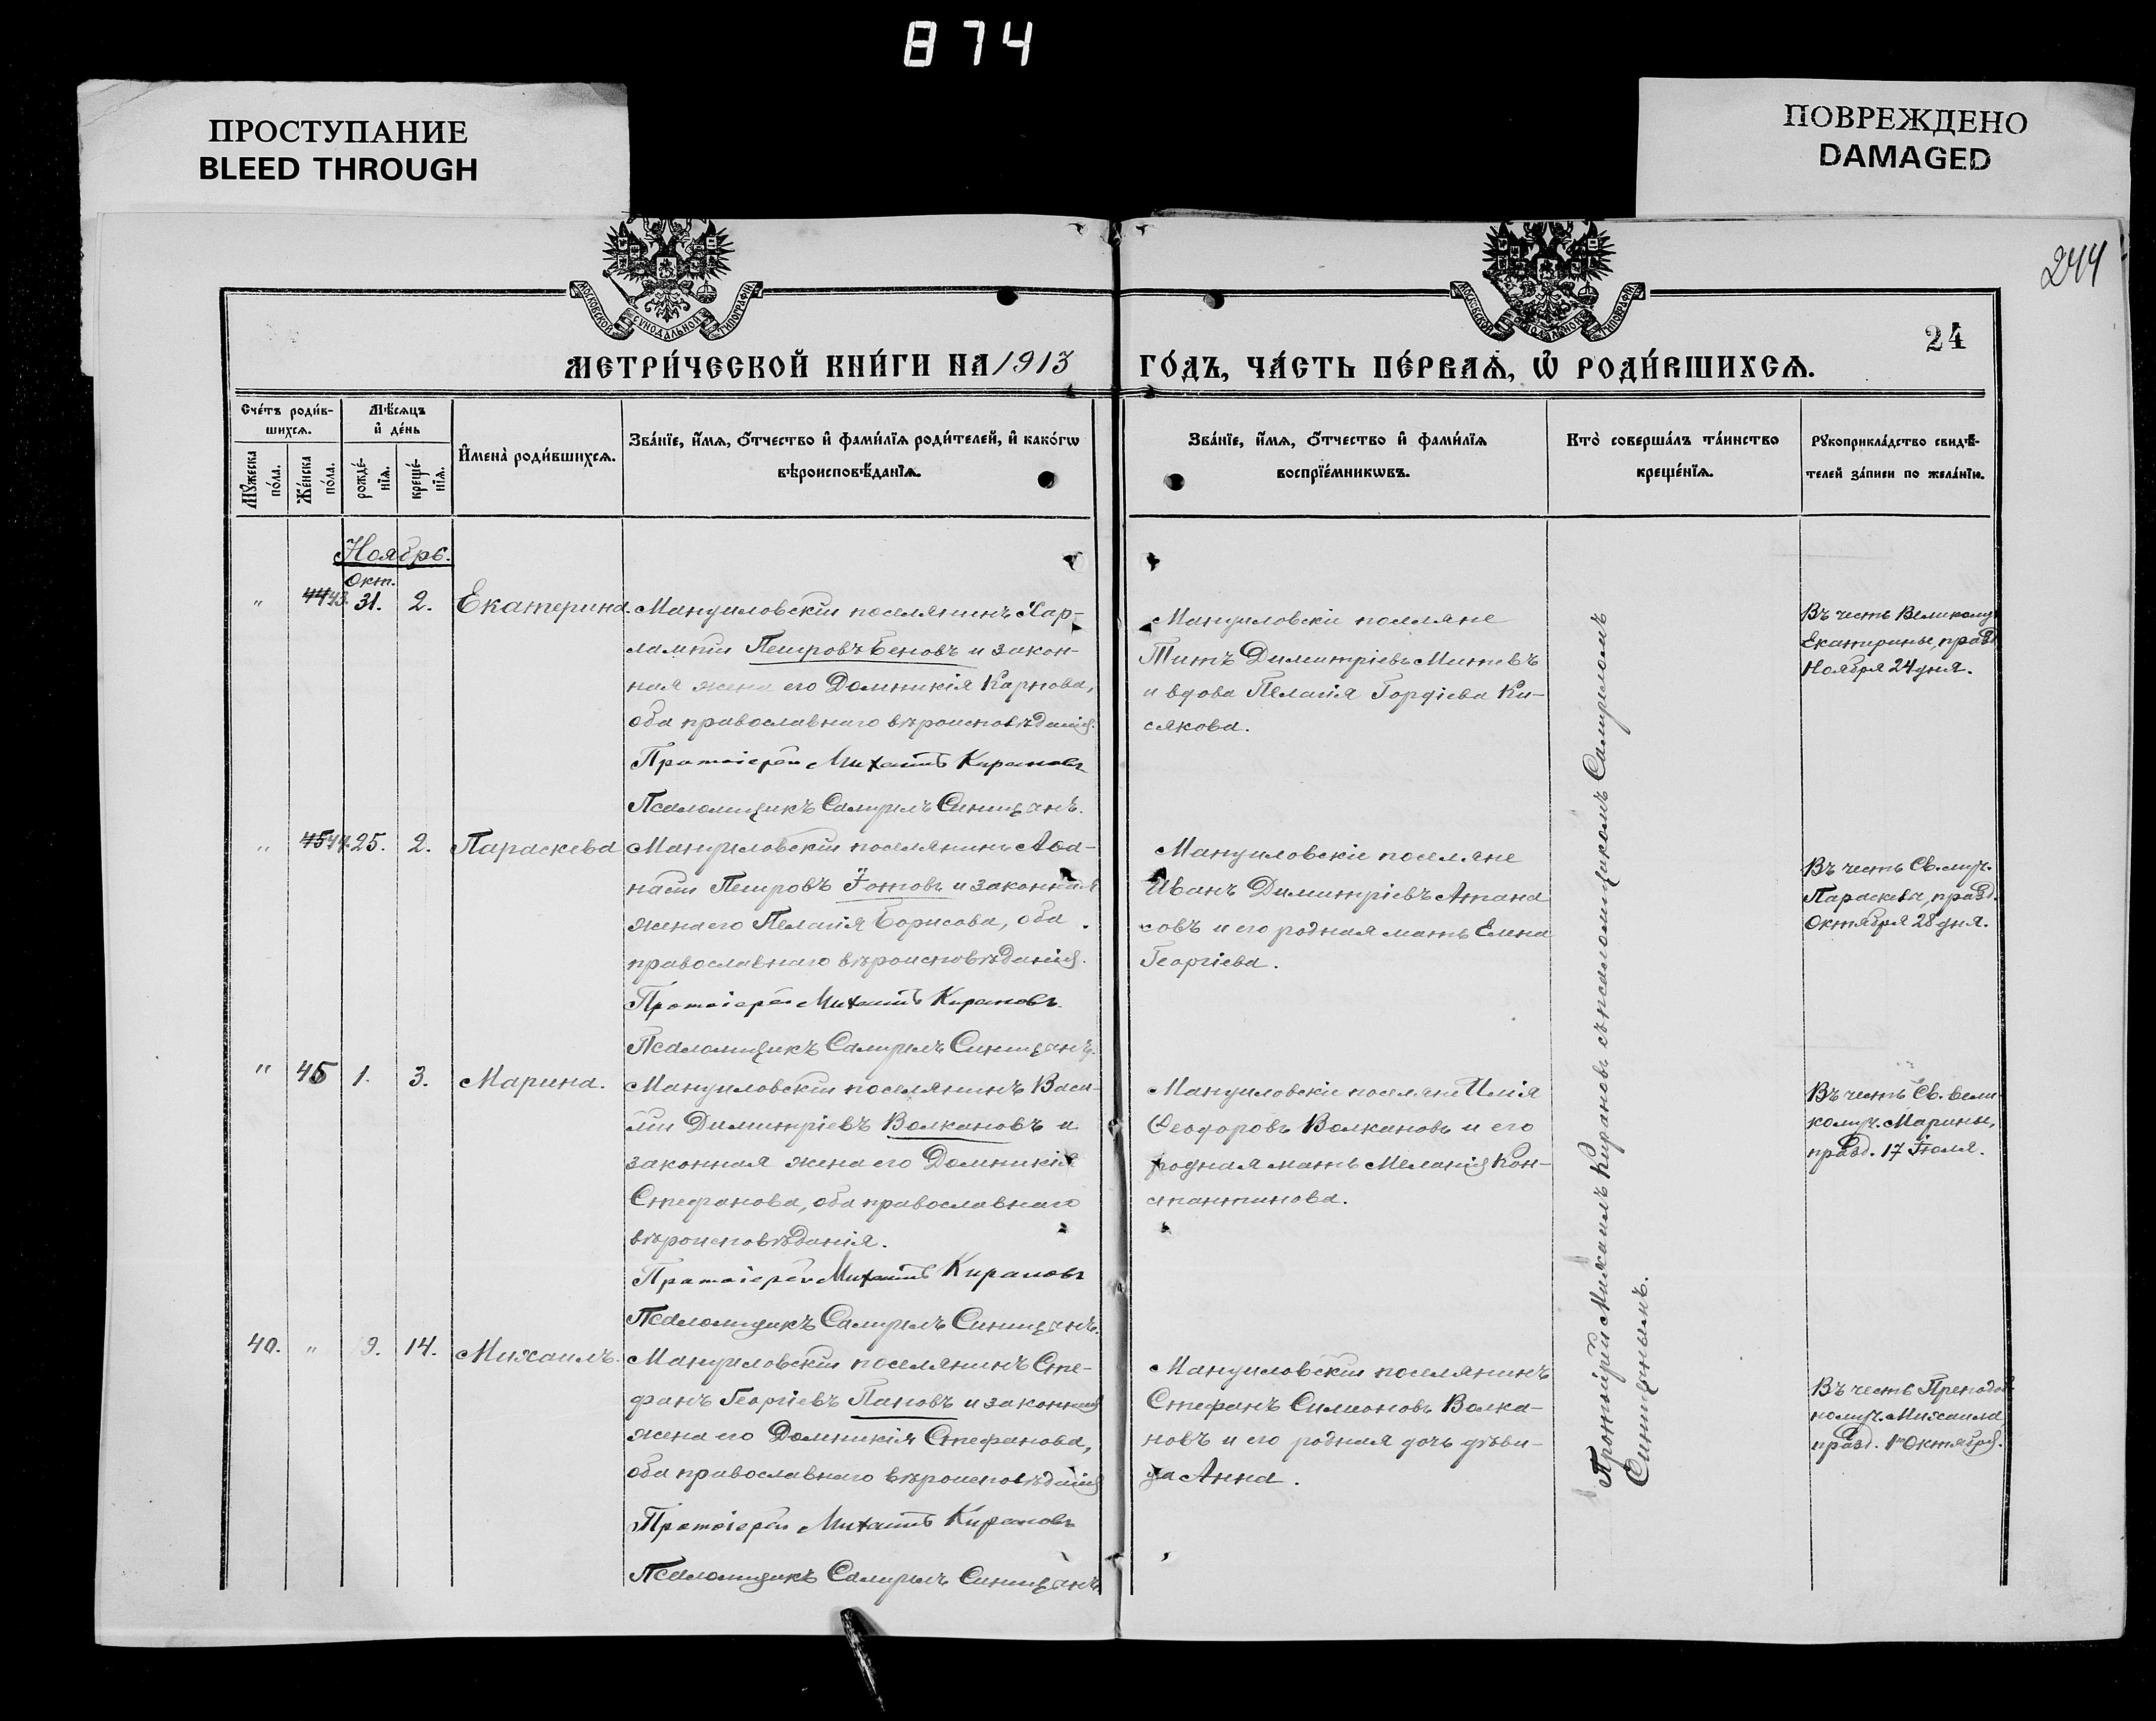 874
ПРОСТУПАНИЕ
BLEED THROUGH
ПОВРЕЖДЕНО
DAMAGED
244
МОСКОВСКОЙ СѴНОДАЛЬНОЙ ТИПОГРАФІИ
МОСКОВСКОЙ СѴНОДАЛЬНОЙ ТИПОГРАФІИ
24
МЕТРИ́ЧЕСКОЙ КНИ́ГИ НА 1913
ГО́ДЪ, ЧА́СТЬ ПЕ́РВАѦ, Ѡ҆ РОДИ́ВШИХСѦ.
Сче́тъ роди́в-
шихсѧ.
Мѣ́сѧцъ
и҆ де́нь
Мꙋ́жеска по́ла.
Же́нска по́ла.
рожде́-
нїѧ.
креще́-
нїѧ.
И҆мена̀ роди́вшихсѧ.
Зва́нїе, и҆́мѧ, ѻ҆́тчество и҆ фами́лїѧ роди́телей, и҆ како́гѡ
вѣроисповѣ́данїѧ.
Зва́нїе, и҆́мѧ, ѻ҆́тчество и҆ фами́лїѧ
воспрїе́мникѡвъ.
Кто̀ соверша́лъ та́инство
креще́нїѧ.
Рꙋкоприкла́дство свидѣ́-
телей за́писи по жела́нїю.
Ноябрь.
Окт.
" 44 43. 31. 2. Екатерина.
Мануиловскій поселянинъ Хар-
лампій Петровъ Беновъ и закон-
ная жена его Домникія Карпова,
оба православнаго вѣроисповѣданія.
Протоіерей Михаилъ Кирановъ
Псаломщикъ Самуилъ Синицанъ.
Мануиловскіе поселяне
Титъ Димитріевъ Митевъ
и вдова Пелагія Гордіева Ки-
сякова.
Въ честь Великому.
Екатерины, празд.
Ноября 24 дня.
" 45 44. 25. 2. Параскева
Мануиловскій поселянинъ Аѳа-
насій Петровъ Іотовъ и законная
жена его Пелагія Борисова, оба
православнаго вѣроисповѣданія.
Протоіерей Михаилъ Кирановъ.
Псаломщикъ Самуилъ Синицанъ.
Мануиловскіе поселяне
Иванъ Димитріевъ Атана
совъ и его родная мать Елена
Георгіева.
Въ честь Св. муч.
Параскевы, празд.
Октября 28 дня.
" 45 1. 3. Марина.
Мануиловскій поселянинъ Васи-
лій Димитріевъ Волкановъ и
законная жена его Домникія
Стефанова, оба православнаго
вѣроисповѣданія.
Протоіерей Михаилъ Кирановъ
Псаломщикъ Самуилъ Синицанъ.
Мануиловскіе поселяне Илія
Ѳеодоровъ Волкановъ и его
родная мать Меланія Кон-
стантинова.
Въ честь Св. вели
комуч. Марины,
празд. 17 Іюля.
40. " 9. 14. Михаилъ.
Мануиловскій поселянинъ Сте-
фанъ Георгіевъ Пановъ и законная
жена его Домникія Стефанова,
оба православнаго вѣроисповѣданія
Протоіерей Михаилъ Кирановъ
Псаломщикъ Самуилъ Синицанъ
Мануиловскій поселянинъ
Стефанъ Симеоновъ Волка-
новъ и его родная дочь дѣви-
ца Анна.
Въ честь Преподоб
номуч. Михаила
празд. 1го Октября.
Протоіерей Михаилъ Кирановъ съ псаломщикомъ Самуиломъ
Синицаномъ.